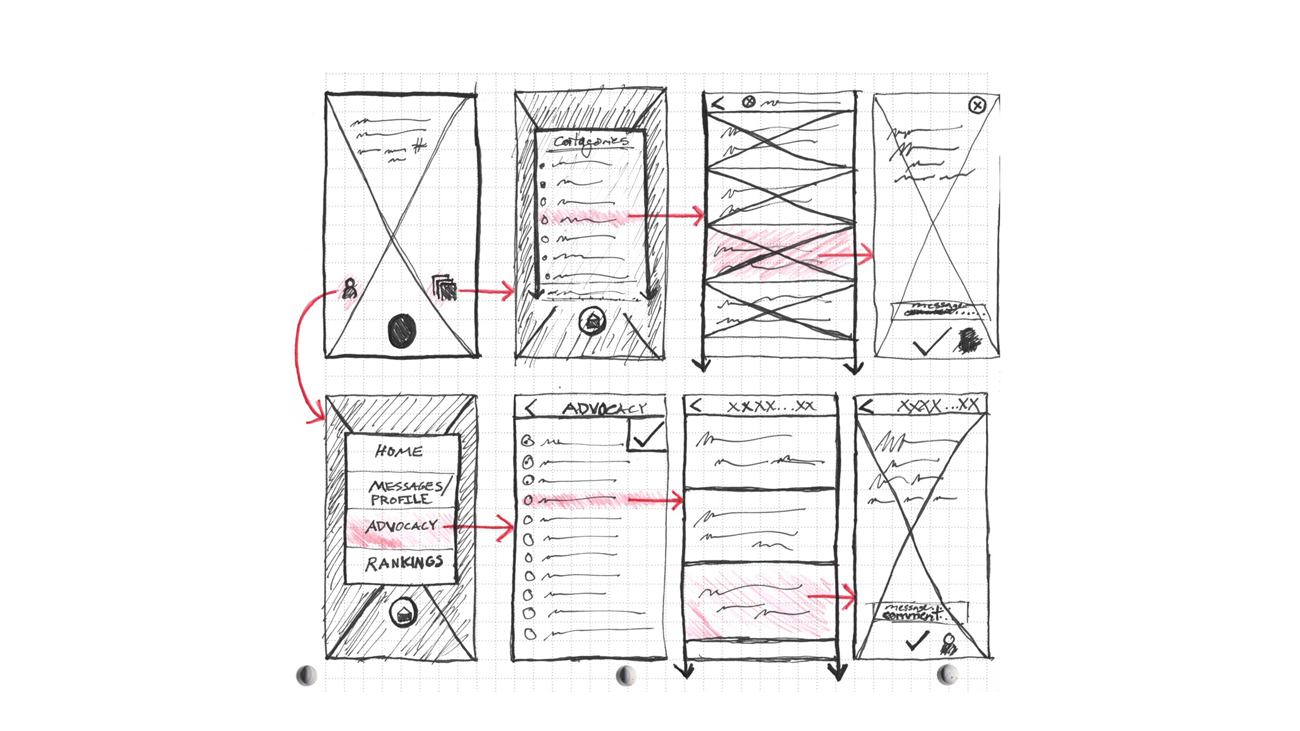 #
Catagories
message
HOME
MESSAGES/
PROFILE
ADVOCACY
RANKINGS
ADVOCACY
XXXX...XX
XXXX...XX
message..
comment..